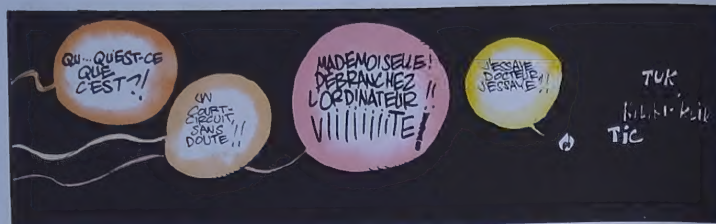 QU...QU'EST-CE
QUE
C'EST?!
UN
COURT-
CIRCUIT,
SANS
DOUTE!!
MADEMOISELLE!
DÉBRANCHEZ
L'ORDINATEUR!!
VIIIIIIIITE!
J'ESSAYE
DOCTEUR,
J'ESSAYE!!
TUK
TIC